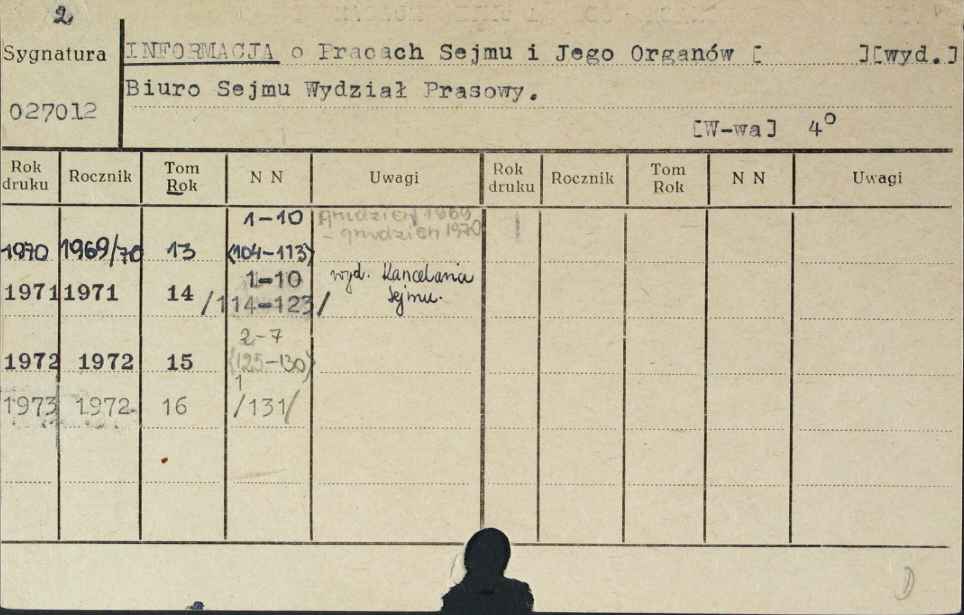 2
Sygnatura INFORMACJA o Pracach Sejmu i Jego Organów [ ][wyd.]
027012 Biuro Sejmu Wydział Prasowy.
[W-wa] 4°
Rok druku Rocznik Tom Rok N N Uwagi Rok druku Rocznik Tom Rok N N Uwagi
1-10 grudzień 1969
- grudzień 1970
1970 1969/70 13 (104-113)
1-10 wyd. Kancelaria
1971 1971 14 /114-123/ Sejmu.
2-7
1972 1972 15 (125-130)
1
1973 1972 16 /131/